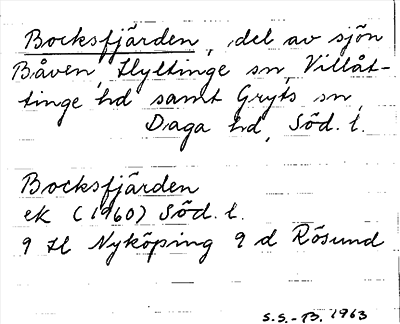 Bocksfjärden, del av sjön
Båven, Hyltinge sn, Villåt-
tinge hd samt Gryts sn,
Daga hd, Söd. l.
Bocksfjärden
ek (1960) Söd. l.
9 H Nyköping 9 d Rösund
S.S.-B. 1963